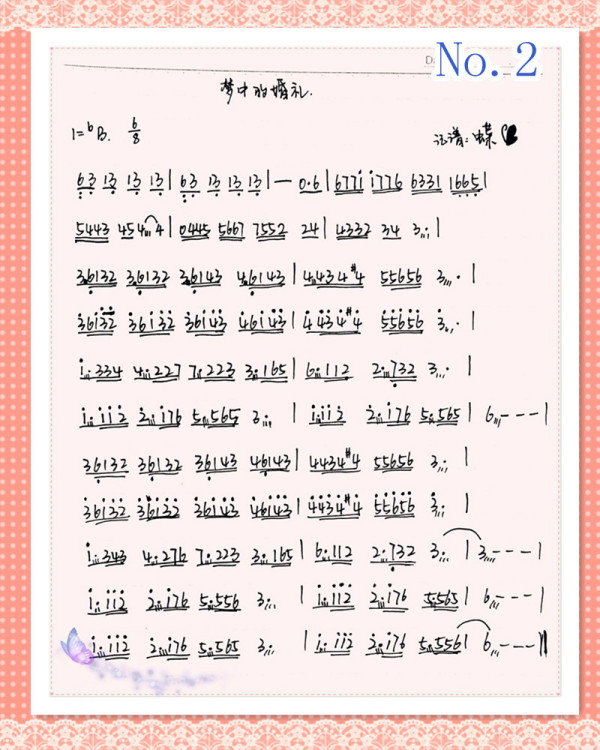 No. 2
梦中的婚礼.
1=♭B. 6/8 记谱:蝶
63 13 13 13 | 63 13 13 13 | — 0·6 | 6771 1776 6331 1665 |
5443 454 4 | 0445 5667 7552 24 | 4332 34 3 |
36132 36132 36143 46143 | 4434#4 55656 3 · |
36132 36132 36143 46143 | 4434#4 55656 3 · |
1·334 4·227 7·223 3·165 | 6·112 2·732 3 · |
1·112 2·176 5·565 3· | 1·112 2·176 5·565 | 6 - - - |
36132 36132 36143 46143 | 4434#4 55656 3 |
36132 36132 36143 46143 | 4434#4 55656 3 |
1·343 4·276 7·223 3·165 | 6·112 2·732 3 | 3 - - - |
1·112 2·176 5·556 3· | 1·112 2·176 5565 | 6 - - - |
1·112 2·176 5·565 3· | 1·112 2·176 5·556 | 6 - - - ||